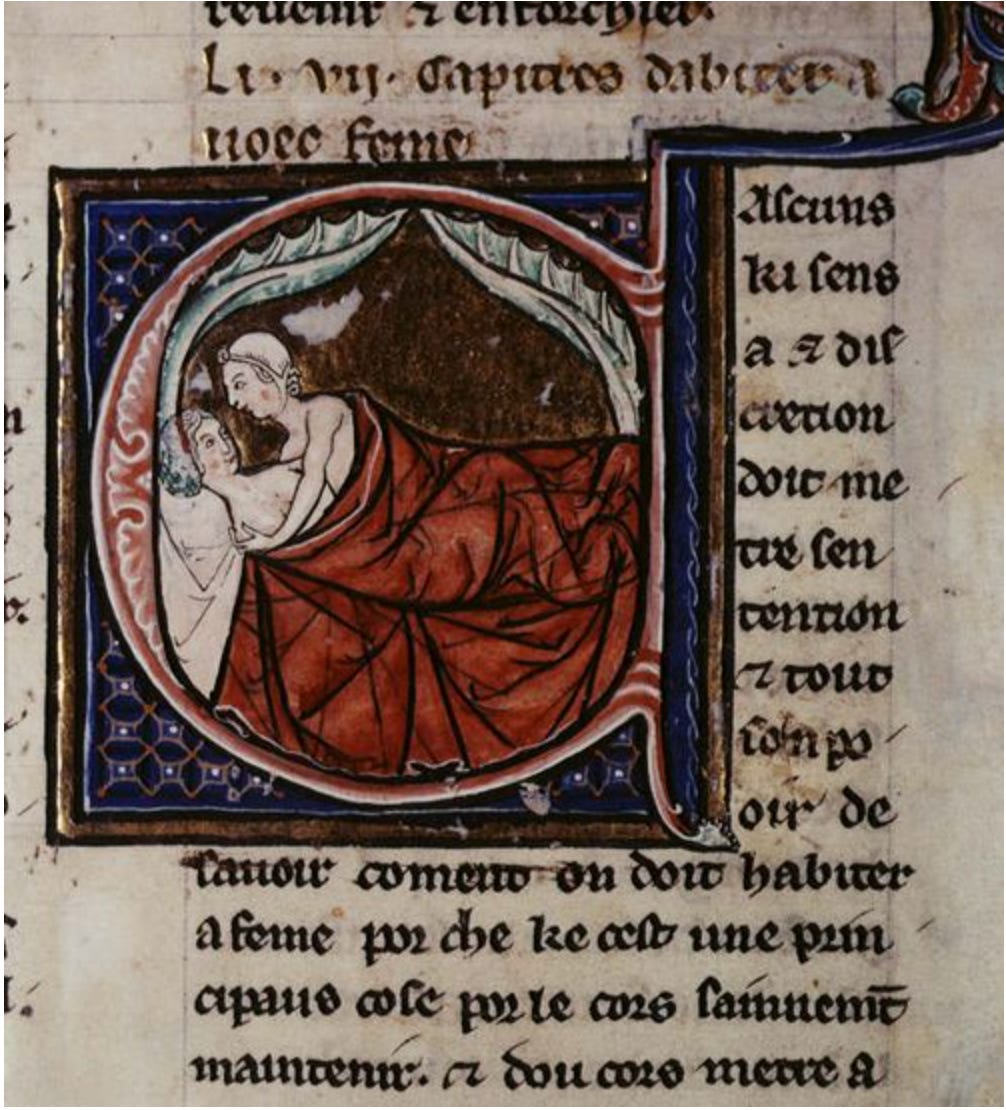 revenir ⁊ en forchier.
Li · vij · Capitres dabiter a
uoec feme
Ascuns
ki sens
a ⁊ dis
cretion
doit me
tre sen
tention
⁊ tout
son po
oir de
sauoir coment on doit habiter
a feme por che ke cest une prin
cipaus cose por le cors sainnemt̄
maintenir. ⁊ dou cors metre a